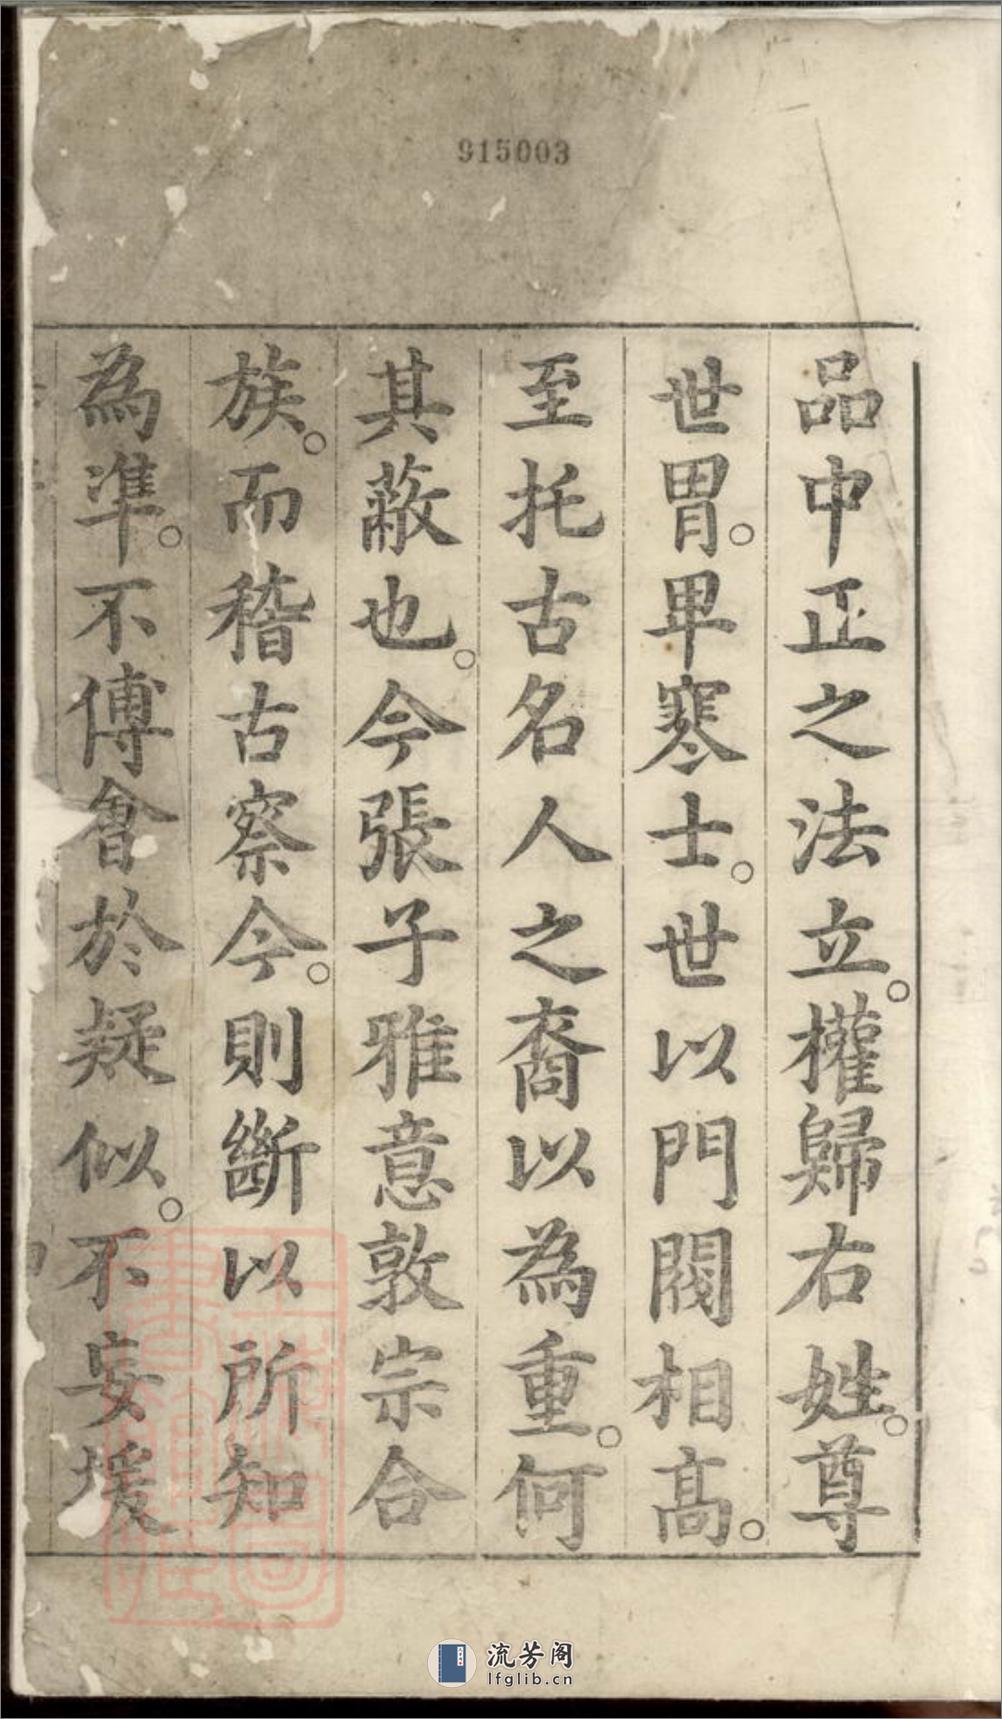 915003
品中正之法立。權歸右姓。尊
世冑。卑寒士。世以門閥相高。
至托古名人之裔以為重。何
其蔽也。今張子雅意敦宗合
族。而稽古察今。則斷以所知
為準。不傅會於疑似。不妄援
流芳阁
lfglib.cn